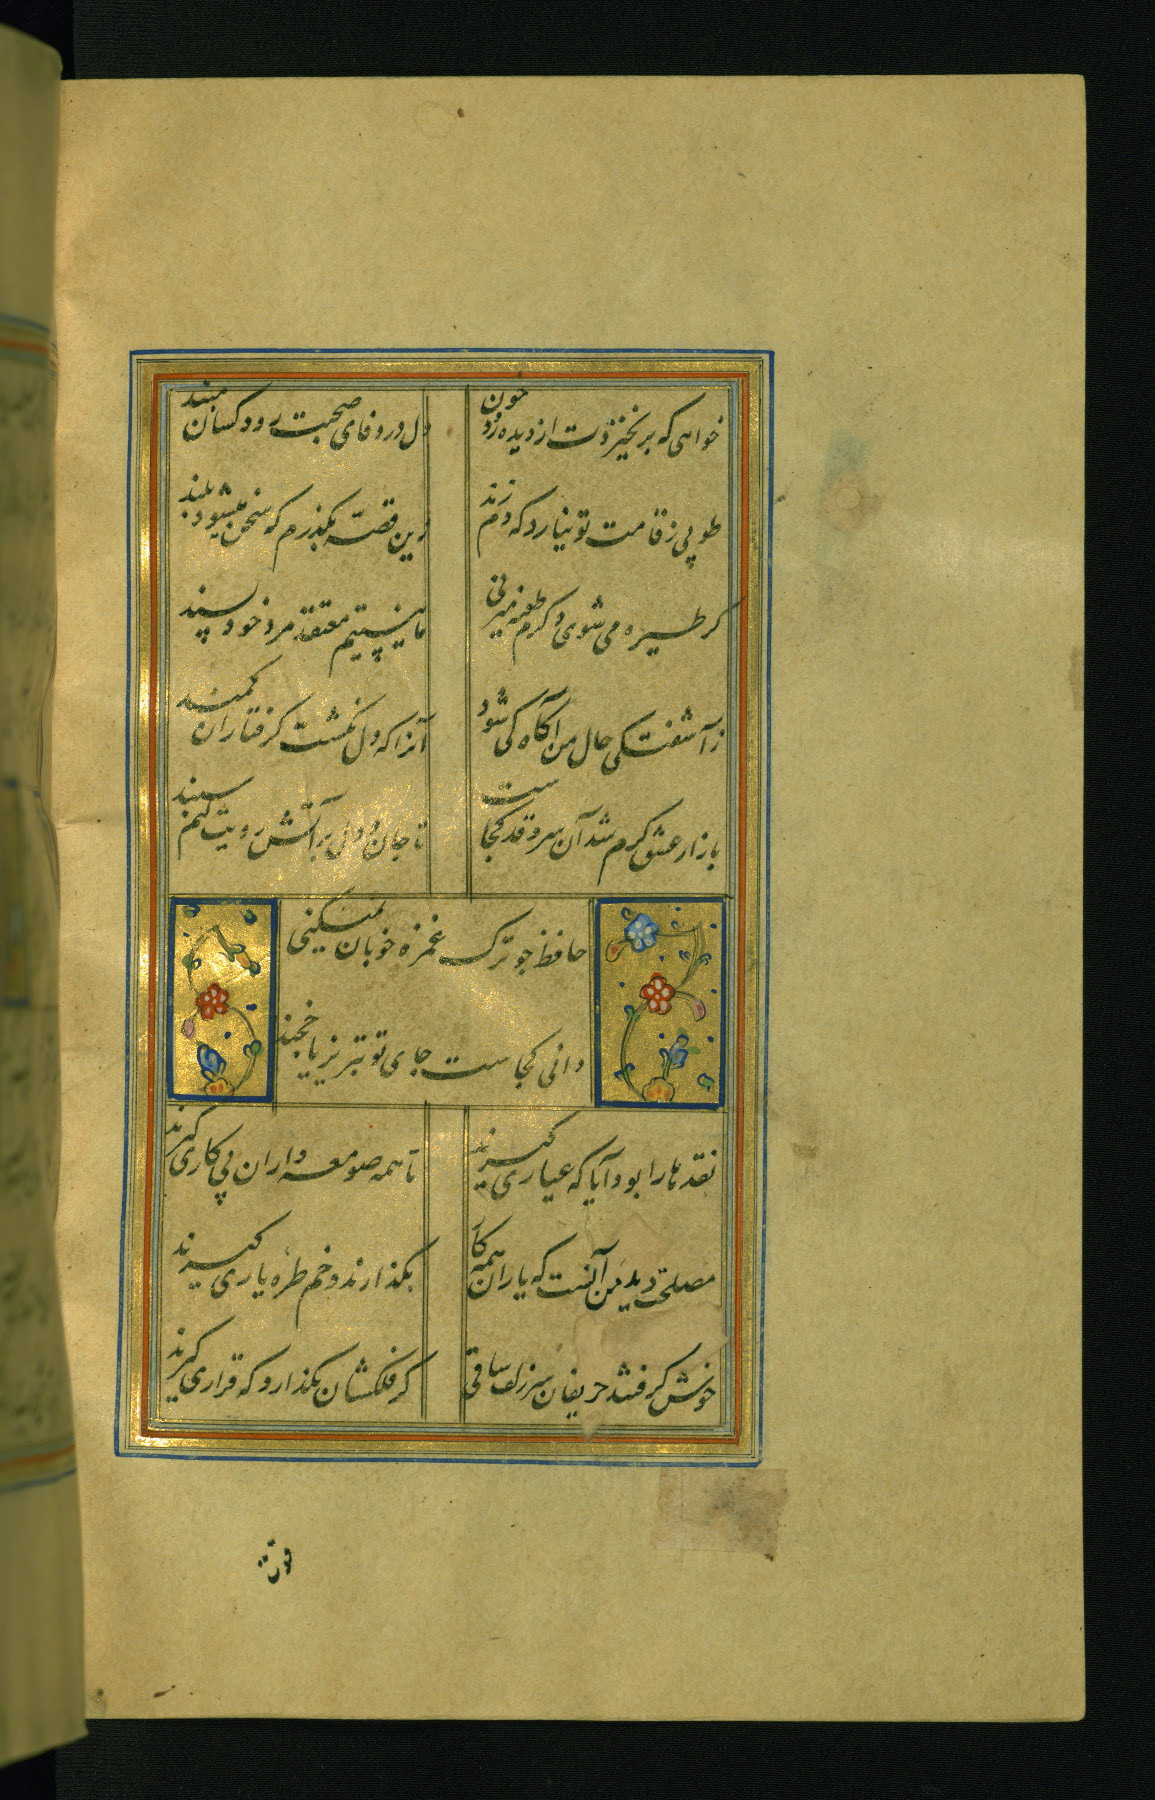 خواهی که بر نخیزدت از دیده رود خون
دل در وفای صحبت رود کسان مبند
طوبی ز قامت تو نیارد که دم زند
زین قصه بگذرم که سخن میشود بلند
کر طیره می شوی و کرم طعنه میزنی
ما نیستیم معتقد مرد خود پسند
ز آشفتکی حال من آکاه کی شود
آنرا که دل نکشت کرفتار آن کمند
بازار عشق کرم شد آن سرو قد کجاست
تا جان و دل بر آتش رویت کنم سپند
حافظ چو ترک غمزه خوبان نمیکنی
دانی کجاست جای تو تبریز یا خجند
نقدها را بود آیا که عیاری کیرند
تا همه صومعه داران پی کاری کیرند
مصلحت دید من آنست که یاران همه کار
بکذارند و خم طره یاری کیرند
خوش کرفتند حریفان سر زلف ساقی
کر فلکشان بکذارد که قراری کیرند
قوت